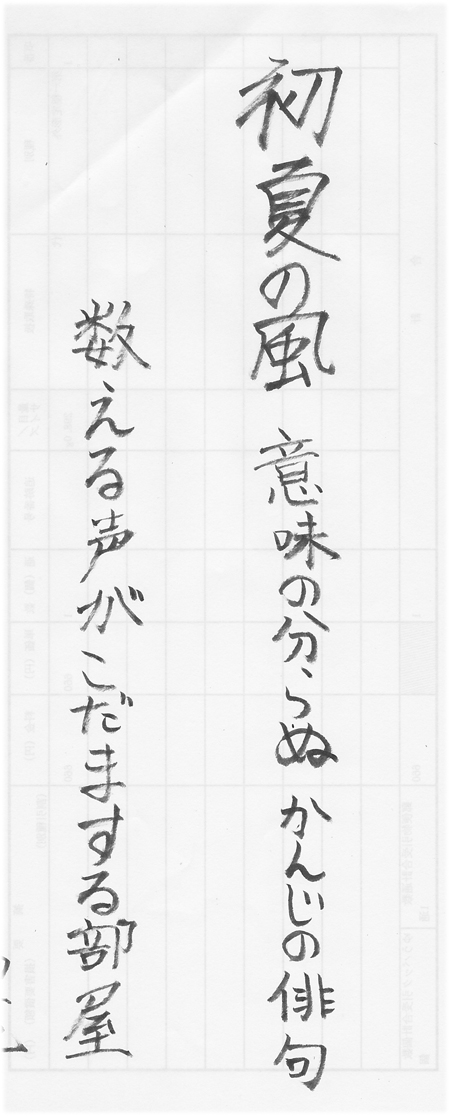 初夏の風 意味の分らぬ かんじの俳句
数える声がこだまする部屋